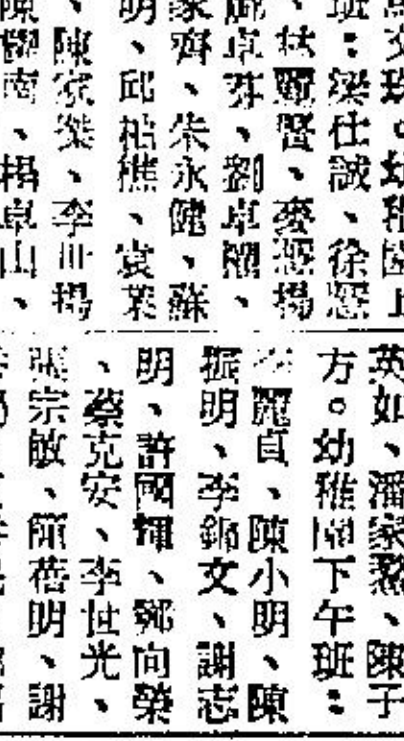 文珠。幼稚園上
班：梁仕誠、徐
、林麗賢、麥
卓芬、劉卓權、
家齊、朱永健、蘇
明、邱柏樵、袁業
、陳家傑、李世揚
南、楊卓山、
英如、潘家、陳子
方。幼稚園下午班：
李麗貞、陳小明、陳
振明、李錦文、謝志
明、許國輝、鄧向榮
、蔡克安、李世光、
張宗敏、簡蓓明、謝